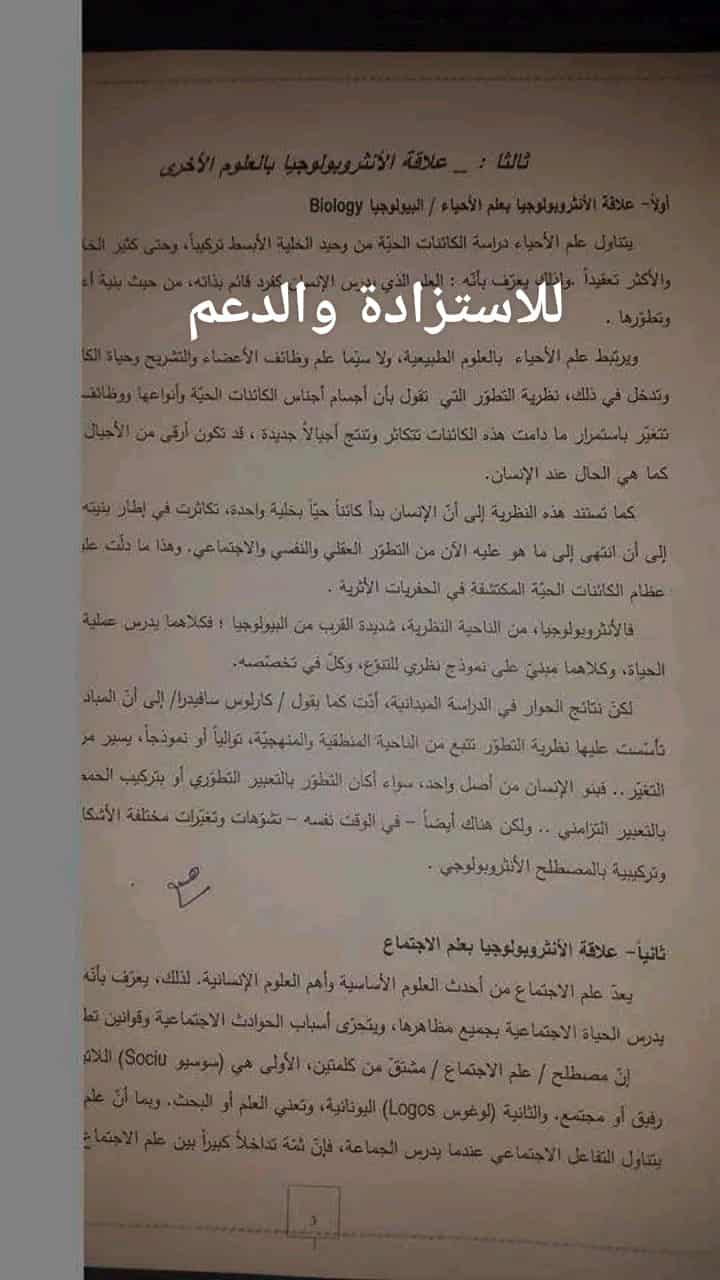 ثالثا : _ علاقة الأنثروبولوجيا بالعلوم الأخرى
أولاً- علاقة الأنثروبولوجيا بعلم الأحياء / البيولوجيا Biology
يتناول علم الأحياء دراسة الكائنات الحيّة من وحيد الخلية الأبسط تركيباً، وحتى كثير الخا
والأكثر تعقيداً . ولذلك يعرّف بأنّه : العلم الذي يدرس الإنسان كفرد قائم بذاته، من حيث بنية أع
للاستزادة والدعم
وتطوّرها .
ويرتبط علم الأحياء بالعلوم الطبيعية، ولا سيّما علم وظائف الأعضاء والتشريح وحياة الكا
وتدخل في ذلك، نظرية التطوّر التي تقول بأن أجسام أجناس الكائنات الحيّة وأنواعها ووظائف
تتغيّر باستمرار ما دامت هذه الكائنات تتكاثر وتنتج أجيالاً جديدة ، قد تكون أرقى من الأجيال
كما هي الحال عند الإنسان.
كما تستند هذه النظرية إلى أنّ الإنسان بدأ كائناً حيّاً بخلية واحدة، تكاثرت في إطار بنيته
إلى أن انتهى إلى ما هو عليه الآن من التطوّر العقلي والنفسي والاجتماعي. وهذا ما دلّت علي
عظام الكائنات الحيّة المكتشفة في الحفريات الأثرية .
فالأنثروبولوجيا، من الناحية النظرية، شديدة القرب من البيولوجيا ؛ فكلاهما يدرس عملية
الحياة، وكلاهما مبنيّ على نموذج نظري للتنوّع، وكلّ في تخصّصه.
لكنّ نتائج الحوار في الدراسة الميدانية، أدّت كما يقول / كارلوس سافيدرا/ إلى أنّ المباد
تأسّست عليها نظرية التطوّر تتبع من الناحية المنطقية والمنهجيّة، توالياً أو نموذجاً، يسير مر
التغيّر .. فبنو الإنسان من أصل واحد، سواء أكان التطوّر بالتعبير التطوّري أو بتركيب الحم
بالتعبير التزامني .. ولكن هناك أيضاً – في الوقت نفسه – تشوّهات وتغيّرات مختلفة الأشكا
وتركيبية بالمصطلح الأنثروبولوجي .
ثانياً- علاقة الأنثروبولوجيا بعلم الاجتماع
يعدّ علم الاجتماع من أحدث العلوم الأساسية وأهم العلوم الإنسانية. لذلك، يعرّف بأنّه
يدرس الحياة الاجتماعية بجميع مظاهرها، ويتحرّى أسباب الحوادث الاجتماعية وقوانين تط
إنّ مصطلح / علم الاجتماع / مشتقّ من كلمتين، الأولى هي (سوسيو Sociu) اللاتي
رفيق أو مجتمع. والثانية (لوغوس Logos) اليونانية، وتعني العلم أو البحث. وبما أنّ علم
يتناول التفاعل الاجتماعي عندما يدرس الجماعة، فإنّ ثمّة تداخلاً كبيراً بين علم الاجتماع